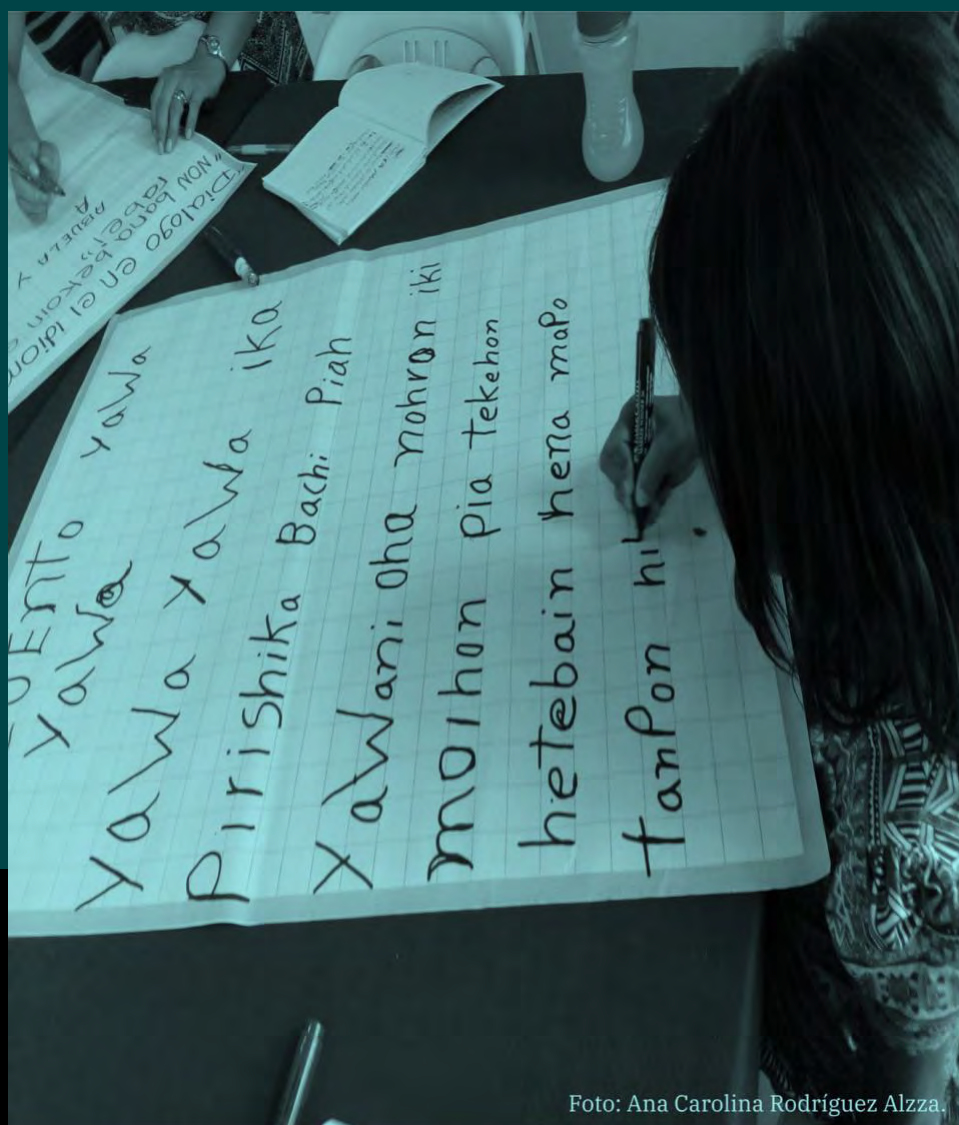 "Dialogo en el Idiom
"NON bana bekoin
ABUELA Y
A
UEnTo YaWa
YaWa
YaWa YaWa ika
PiriShika Bachi Piah
YaWani oha nohron iki
moihon pia tekehon
hetebain hena maPo
tanPon
Foto: Ana Carolina Rodríguez Alzza.